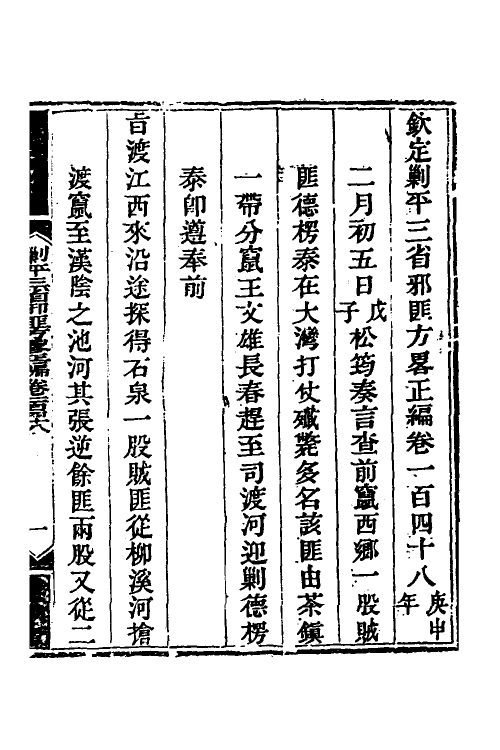 欽定剿平三省邪匪方畧正編卷一百四十八庚申年
二月初五日戊子松筠奏言查前竄西鄉一股賊
匪德楞泰在大灣打仗殲斃多名該匪由茶鎮
一帶分竄王文雄長春趕至司渡河迎剿德楞
泰即遵奉前
旨渡江西來沿途探得石泉一股賊匪從柳溪河搶
渡竄至漢陰之池河其張逆餘匪兩股又從二
剿平三省邪匪方畧正編卷一百四十八
一